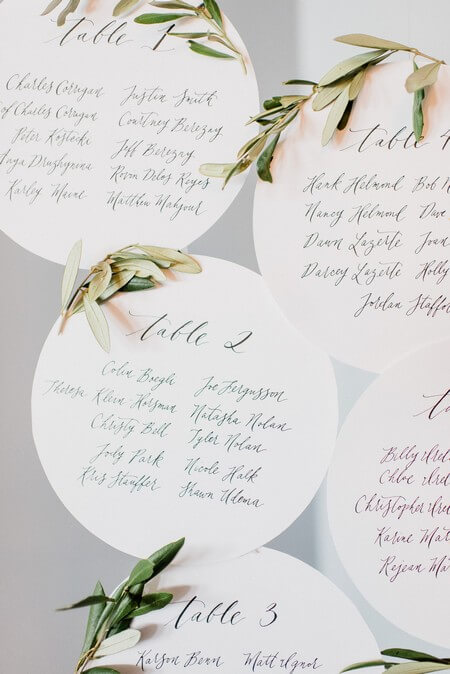 table 1
Charles Corrigan
of Charles Corrigan
Peter Kostecki
Anya Druzhynina
Karley Maine
Justin Smith
Courtney Berezay
Jeff Berezay
Reyes
Matthew Mahjour
table 4
Hank Helmond
Nancy Helmond
Dawn Lazerte
Darcey Lazerte
Bob
Dave
Joan
Holly
Jordan
table 2
Colin Boegli
Theresa Klein-Horsman
Christy Bell
Jody Park
Kris Stauffer
Joe Fergusson
Natasha Nolan
Tyler Nolan
Nicole Halk
Shawn Udema
Billy
Chloe
Christopher
Karine
Rejean
table 3
Karson Benn
Matt